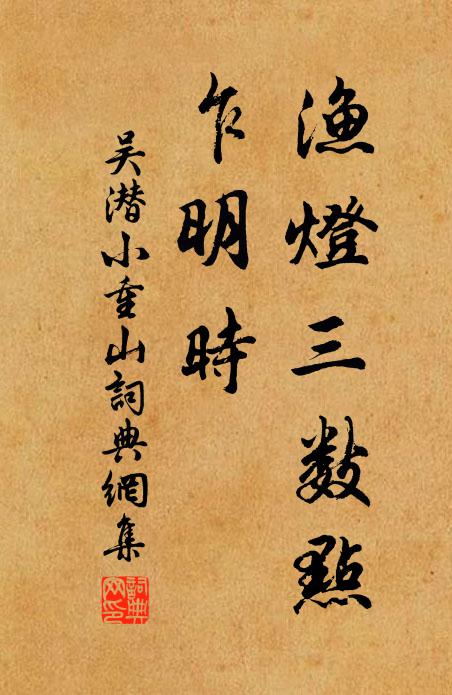 漁燈三數點
乍明時
吴潜小重山詞典網集
詞典網印